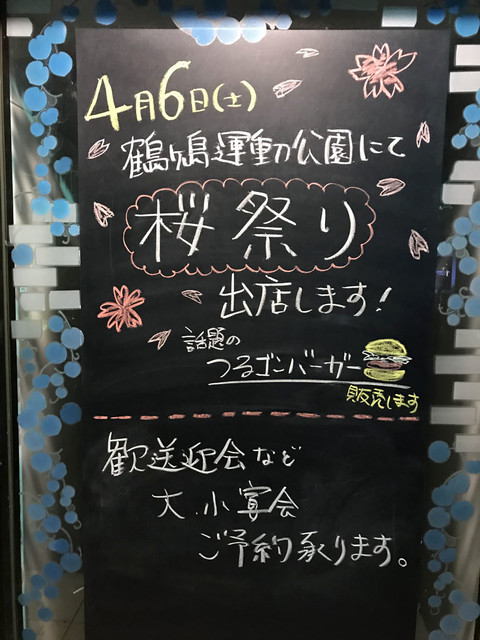 4月6日(土)
鶴ヶ島運動公園にて
桜祭り
出店します!
話題の
つるゴンバーガー
販売します
歓送迎会など
大.小宴会
ご予約承ります。